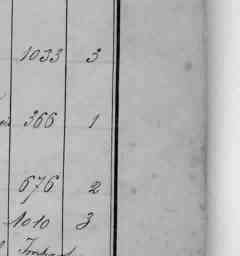 1033 3
366 1
676 2
1010 3